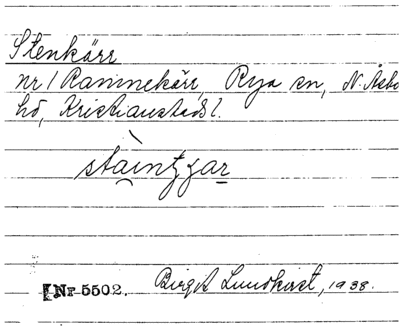 Stenkärr
nr 1 Rammekärr, Rya sn, N. Åsbo
hd, Kristianstads l.
Nr 5502. Birgit Lundkvist, 1938.